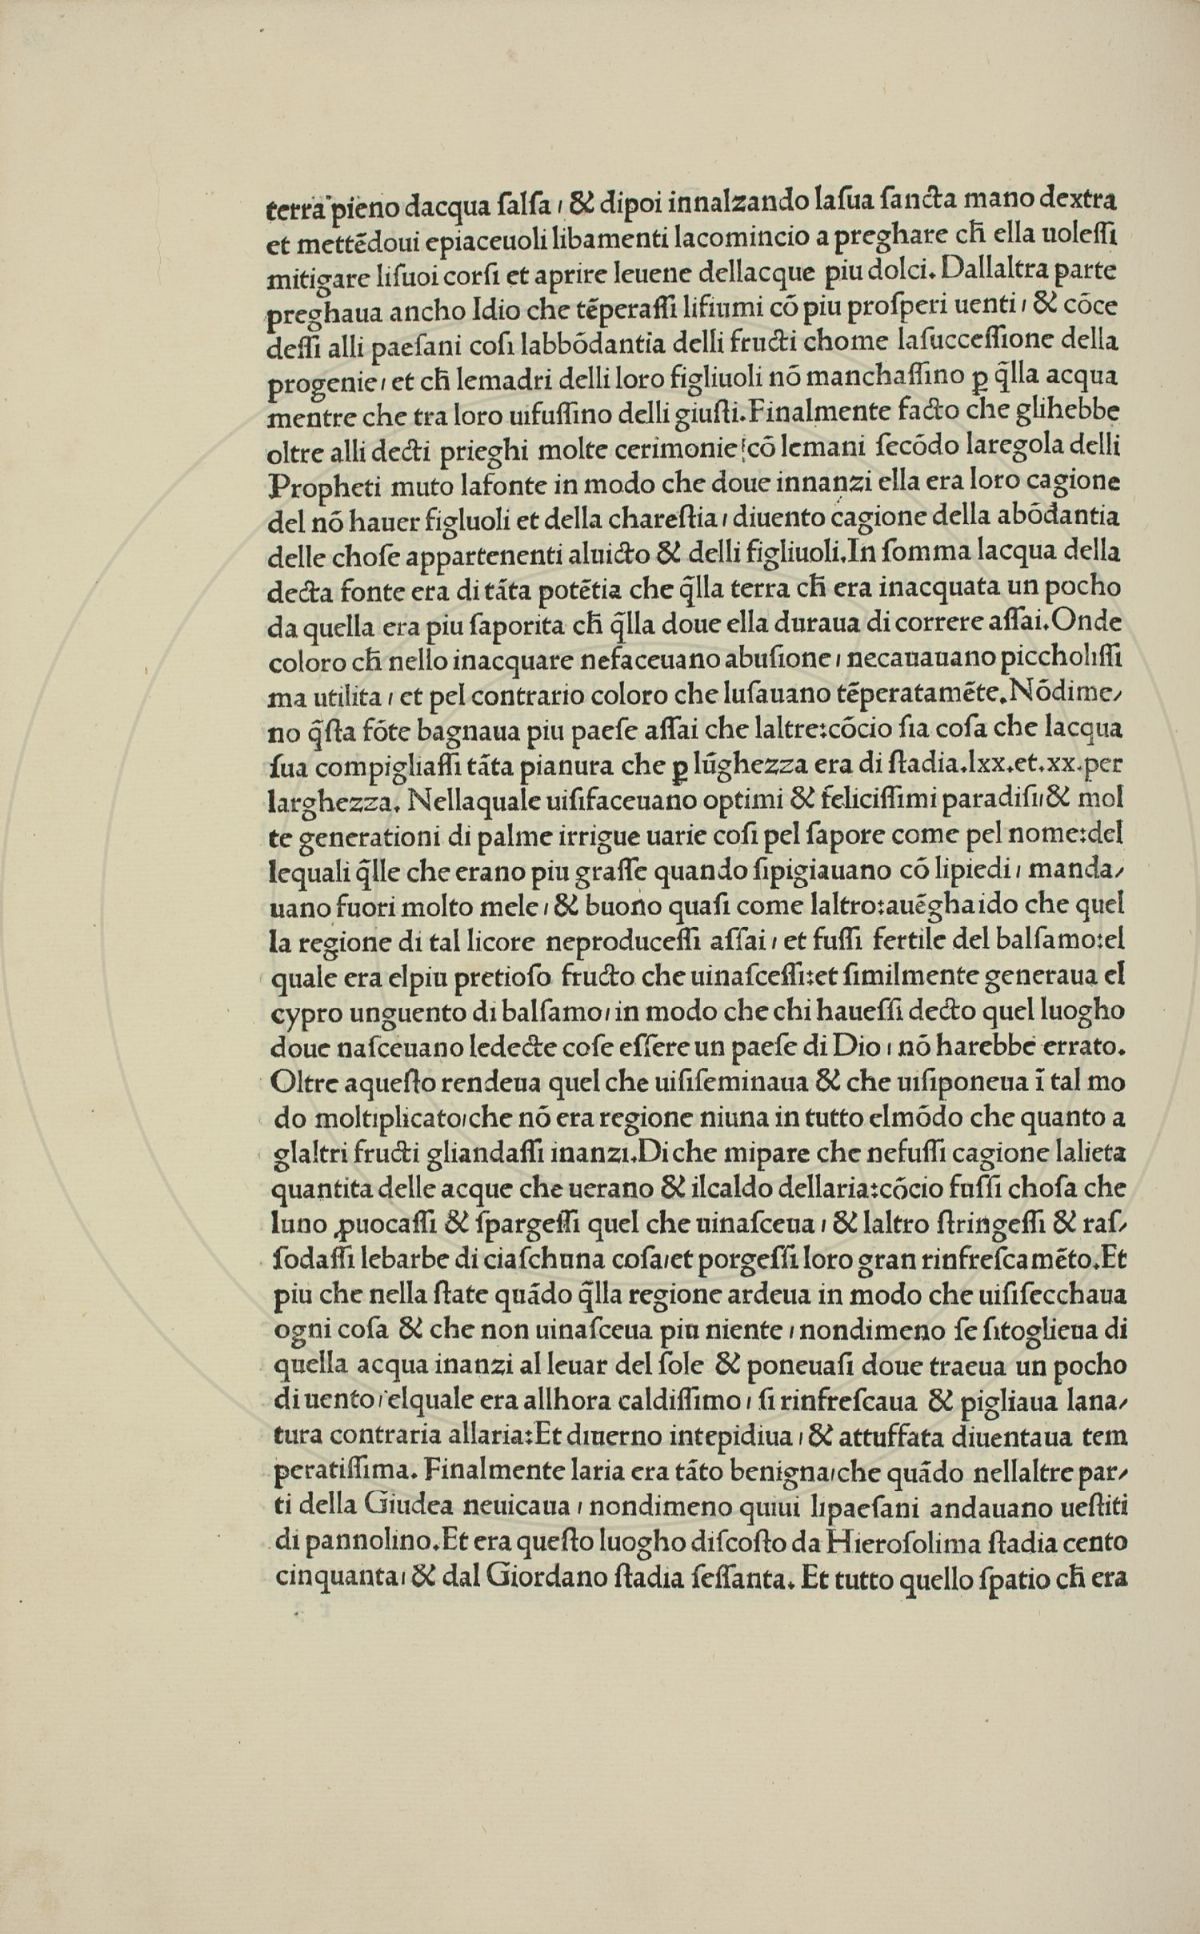 terra pieno dacqua ſalſa, & dipoi innalzando laſua ſancta mano dextra
et mettēdoui epiaceuoli libamenti lacomincio a preghare ch̄ ella uoleſſi
mitigare liſuoi corſi et aprire leuene dellacque piu dolci. Dallaltra parte
preghaua ancho Idio che tēperaſſi lifiumi cō piu proſperi uenti, & cōce
deſſi alli paeſani coſi labbōdantia delli fructi chome laſucceſſione della
progenie, et ch̄ lemadri delli loro figliuoli nō manchaſſino ꝑ q̄lla acqua
mentre che tra loro uifuſſino delli giuſti. Finalmente facto che glihebbe
oltre alli decti prieghi molte cerimonie, cō lemani ſecōdo laregola delli
Propheti muto lafonte in modo che doue innanzi ella era loro cagione
del nō hauer figluoli et della chareſtia, diuento cagione della abōdantia
delle choſe appartenenti aluicto & delli figliuoli. In ſomma lacqua della
decta fonte era di tāta potētia che q̄lla terra ch̄ era inacquata un pocho
da quella era piu ſaporita ch̄ q̄lla doue ella duraua di correre aſſai. Onde
coloro ch̄ nello inacquare nefaceuano abuſione, necauauano piccholiſſi
ma utilita, et pel contrario coloro che luſauano tēperatamēte. Nōdime/
no q̄ſta fōte bagnaua piu paeſe aſſai che laltre: cōcio ſia coſa che lacqua
ſua compigliaſſi tāta pianura che ꝑ lūghezza era di ſtadia. lxx. et. xx. per
larghezza. Nellaquale uiſifaceuano optimi & feliciſſimi paradiſi, & mol
te generationi di palme irrigue uarie coſi pel ſapore come pel nome: del
lequali q̄lle che erano piu graſſe quando ſipigiauano cō lipiedi, manda/
uano fuori molto mele, & buono quaſi come laltro: auēghaido che quel
la regione di tal licore neproduceſſi aſſai, et fuſſi fertile del balſamo: el
quale era elpiu pretioſo fructo che uinaſceſſi: et ſimilmente generaua el
cypro unguento di balſamo, in modo che chi haueſſi decto quel luogho
doue naſceuano ledecte coſe eſſere un paeſe di Dio, nō harebbe errato.
Oltre aqueſto rendeua quel che uiſiſeminaua & che uiſiponeua ī tal mo
do moltiplicato, che nō era regione niuna in tutto elmōdo che quanto a
glaltri fructi gliandaſſi inanzi. Di che mipare che nefuſſi cagione lalieta
quantita delle acque che uerano & ilcaldo dellaria: cōcio fuſſi choſa che
luno ꝓuocaſſi & ſpargeſſi quel che uinaſceua, & laltro ſtringeſſi & raſ/
ſodaſſi lebarbe di ciaſchuna coſa, et porgeſſi loro gran rinfreſcamēto. Et
piu che nella ſtate quādo q̄lla regione ardeua in modo che uiſiſecchaua
ogni coſa & che non uinaſceua piu niente, nondimeno ſe ſitoglieua di
quella acqua inanzi al leuar del ſole & poneuaſi doue traeua un pocho
di uento, elquale era allhora caldiſſimo, ſi rinfreſcaua & pigliaua lana/
tura contraria allaria: Et diuerno intepidiua, & attuffata diuentaua tem
peratiſſima. Finalmente laria era tāto benigna, che quādo nellaltre par/
ti della Giudea neuicaua, nondimeno quiui lipaeſani andauano ueſtiti
di pannolino. Et era queſto luogho diſcoſto da Hieroſolima ſtadia cento
cinquanta, & dal Giordano ſtadia ſeſſanta. Et tutto quello ſpatio ch̄ era